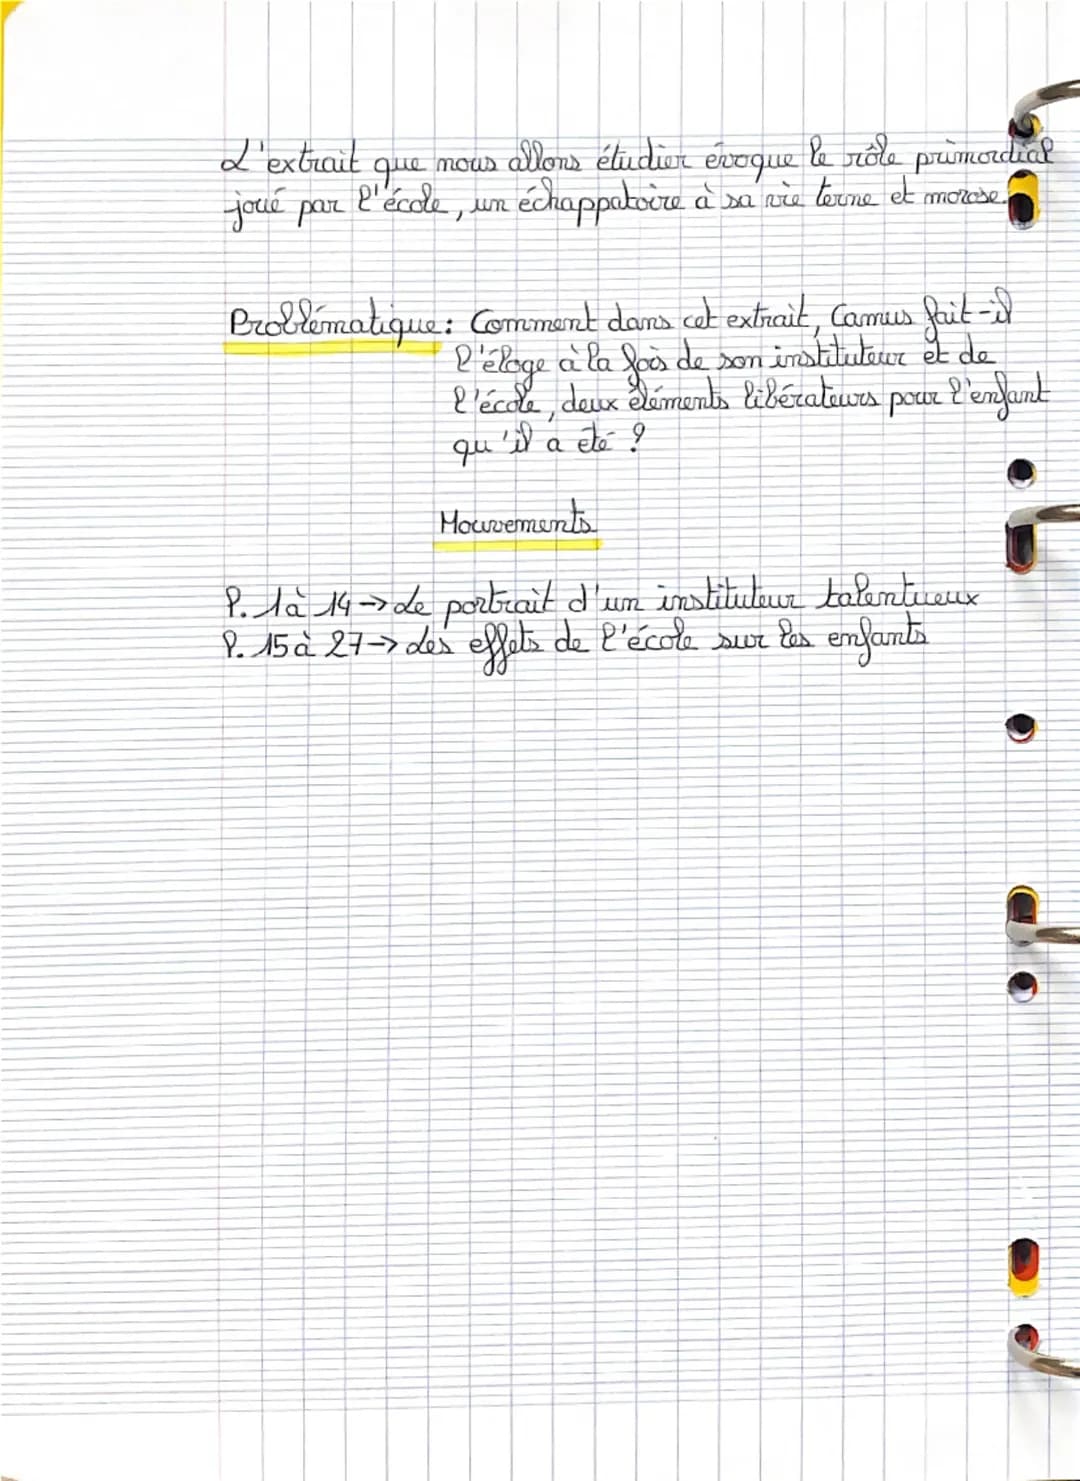 L'extrait que nous allons étudier évoque le rôle primordial
joué par l'école, un échappatoire à sa vie terne et morose.
Problématique : Comment dans cet extrait, Camus fait-il
l'éloge à la fois de son instituteur et de
l'école, deux éléments libérateurs pour l'enfant
qu'il a été ?
Mouvements
P. 1 à 14 → Le portrait d'un instituteur talentueux
P. 15 à 27 → Les effets de l'école sur les enfants